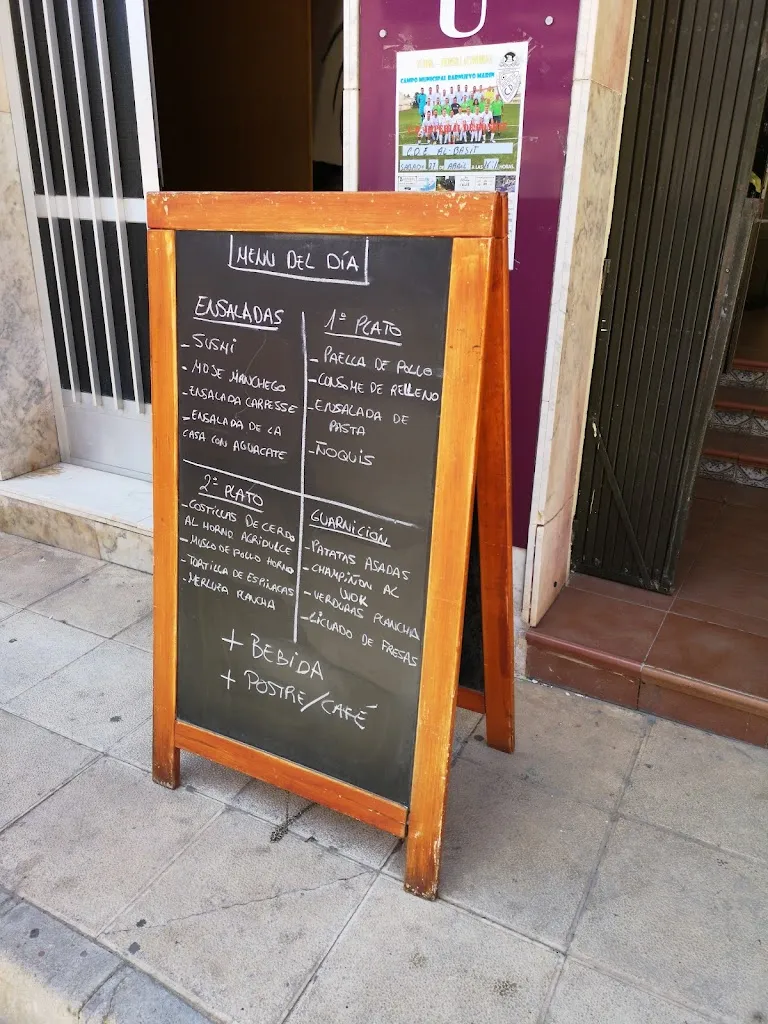 U
CAMPO MUNICIPAL BARNUEVO MARIN
C.D.E. AL-BASIT
SABADO 27 DE ABRIL A LAS HORAS.
MENU DEL DÍA
ENSALADAS
- SUSHI
- MOJE MANCHEGO
- ENSALADA CARPESSE
- ENSALADA DE LA
CASA CON AGUACATE
1º PLATO
- PAELLA DE POLLO
- CONSOME DE RELLENO
- ENSALADA DE
PASTA
- ÑOQUIS
2º PLATO
- COSTILLAS DE CERDO
AL HORNO AGRIDULCE
- MUSLO DE POLLO HORNO
- TORTILLA DE ESPINACAS
- MERLUZA PLANCHA
GUARNICIÓN
- PATATAS ASADAS
- CHAMPIÑON AL
WOK
- VERDURAS PLANCHA
- LICUADO DE FRESAS
+ BEBIDA
+ POSTRE/CAFÉ